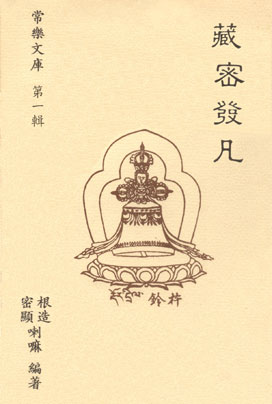 藏密發凡
常樂文庫 第一輯
鈴杵
根造
密顯
喇嘛 編著